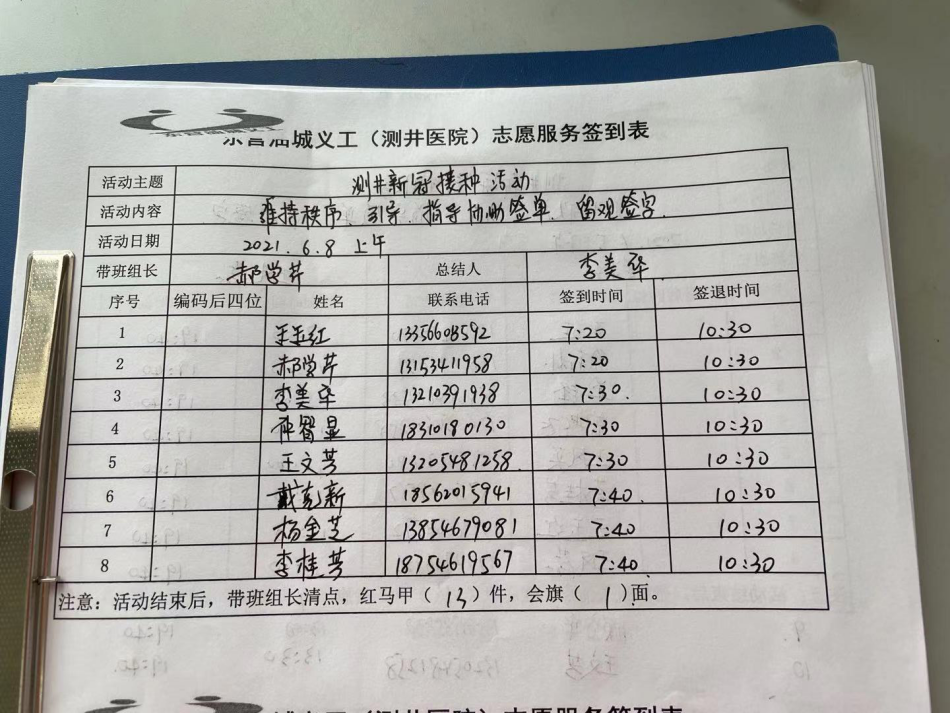 东营油城义工（测井医院）志愿服务签到表
活动主题 测井新冠接种活动
活动内容 维持秩序、引导、指导协助签单、留观签字.
活动日期 2021.6.8 上午
带班组长 郝学芹 总结人 李美华
序号 编码后四位 姓名 联系电话 签到时间 签退时间
1 王玉红 13356608592 7:20 10:30
2 郝学芹 13153411958 7:20 10:30
3 李美华 13210391938 7:30. 10:30
4 仲智显 18310180130 7:30 10:30
5 王文芳 13205481258. 7:30 10:30
6 戴彭新 18562015941 7:40. 10:30
7 杨金芝 13854679081 7:40 10:30
8 李桂芳 18754619567 7:40. 10:30
注意：活动结束后，带班组长清点，红马甲（13）件，会旗（1）面。